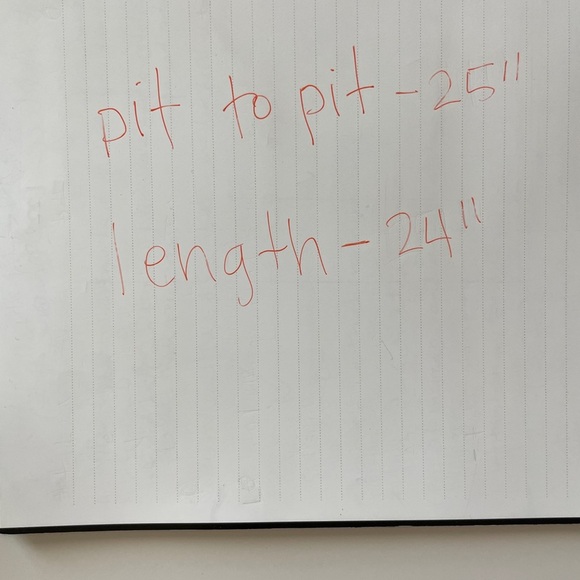 pit to pit - 25"
length - 24"